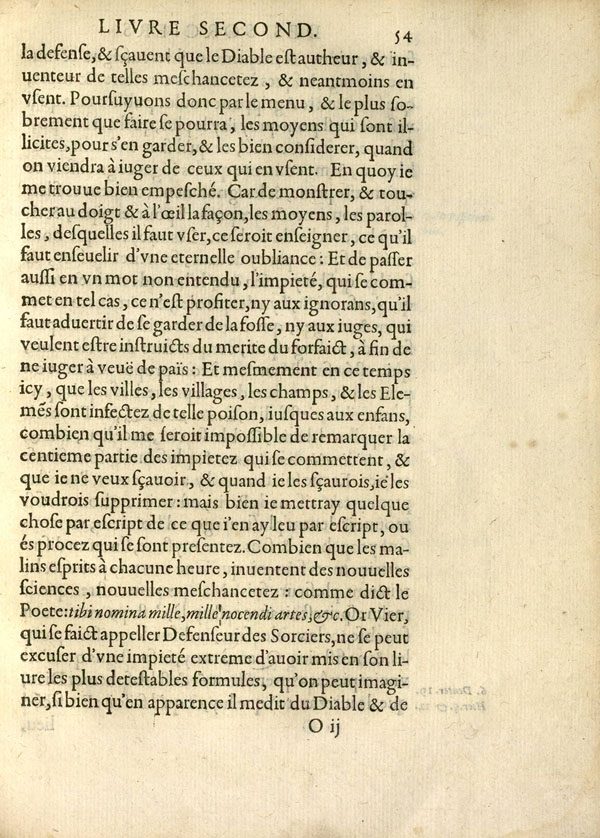 LIVRE SECOND.
54
la defense, & sçauent que le Diable est autheur, & in-
uenteur de telles meschancetez, & neantmoins en
vsent. Poursuyuons donc par le menu, & le plus so-
brement que faire se pourra, les moyens qui sont il-
licites, pour s'en garder, & les bien considerer, quand
on viendra à iuger de ceux qui en vsent. En quoy ie
me trouue bien empesché. Car de monstrer, & tou-
cher au doigt & à l'œil la façon, les moyens, les parol-
les, desquelles il faut vser, ce seroit enseigner, ce qu'il
faut enseuelir d'vne eternelle oubliance: Et de passer
aussi en vn mot non entendu, l'impieté, qui se com-
met en tel cas, ce n'est profiter, ny aux ignorans, qu'il
faut aduertir de se garder de la fosse, ny aux iuges, qui
veulent estre instruicts du merite du forfaict, à fin de
ne iuger à veuë de païs: Et mesmement en ce temps
icy, que les villes, les villages, les champs, & les Ele-
mẽs sont infectez de telle poison, iusques aux enfans,
combien qu'il me seroit impossible de remarquer la
centieme partie des impietez qui se commettent, &
que ie ne veux sçauoir, & quand ie les sçaurois, ie les
voudrois supprimer: mais bien ie mettray quelque
chose par escript de ce que i'en ay leu par escript, ou
és procez qui se sont presentez. Combien que les ma-
lins esprits à chacune heure, inuentent des nouuelles
sciences, nouuelles meschancetez: comme dict le
Poete: tibi nomina mille, mille nocendi artes, &c. Or Vier,
qui se faict appeller Defenseur des Sorciers, ne se peut
excuser d'vne impieté extreme d'auoir mis en son li-
ure les plus detestables formules, qu'on peut imagi-
ner, si bien qu'en apparence il medit du Diable & de
O ij